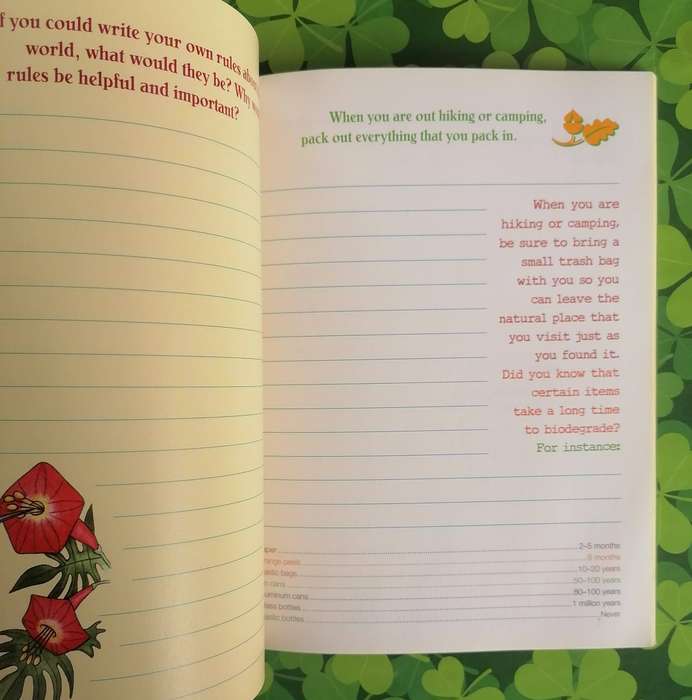 f you could write your own rules
world, what would they be? Why
rules be helpful and important?
When you are out hiking or camping,
pack out everything that you pack in.
When you are
hiking or camping,
be sure to bring a
small trash bag
with you so you
can leave the
natural place that
you visit just as
you found it.
Did you know that
certain items
take a long time
to biodegrade?
For instance:
aper 2–5 months
range peels 6 months
astic bags 10–20 years
n cans 50–100 years
uminum cans 80–100 years
lass bottles 1 million years
astic bottles Never